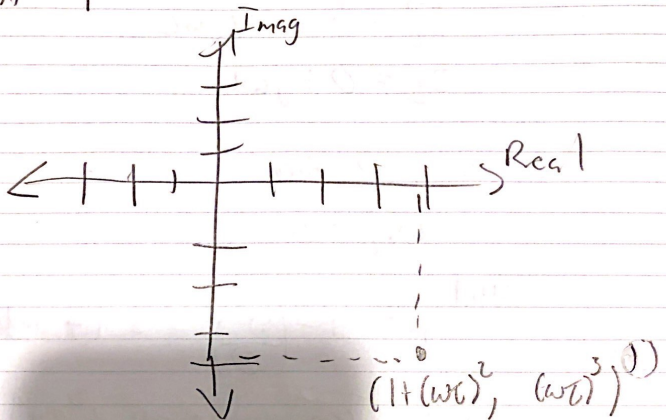 Imag
Real
(1+(ωτ)², (ωτ)³)